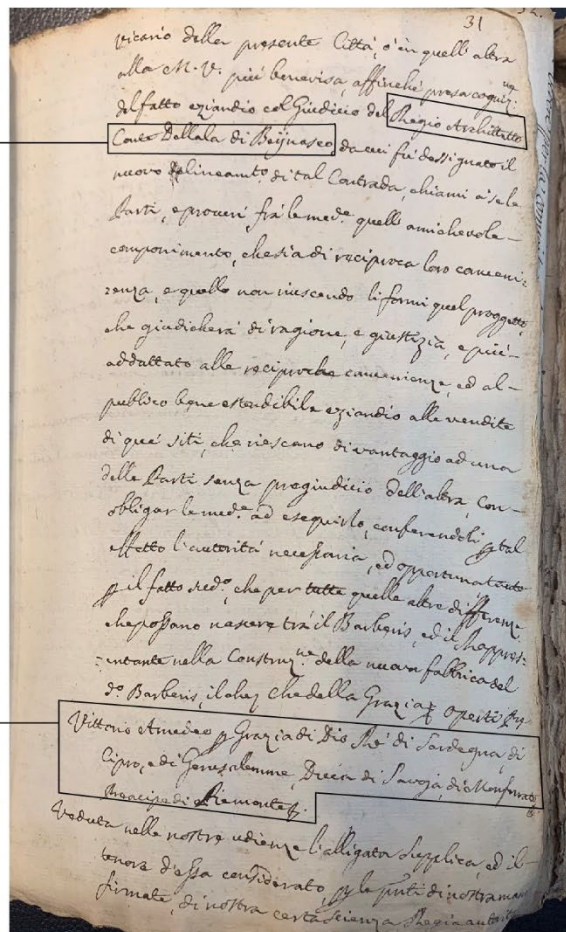 31
vicario della presente Città, ò in quell'altra
alla M. V. più benevisa, affinché presa cogniz.ne
del fatto eziandio col Giudicio del Regio Architetto
Conte Dellala di Beijnasco da cui fù dessignato il
nuovo delineam.to di tal Contrada, chiami à se le
Parti, e procuri frà le med.e quell'amichevole
componimento, che sia di reciproca loro conveni-
enza, e quello non riuscendo li formi quel proggetto,
che giudicherà di ragione, e giustizia, e più
addattato alle reciproche convenienze, ed al
publico bene estendibile eziandio alle vendite
di que' siti, che riescano di vantaggio ad una
delle Parti senza pregiudicio dell'altra, con
obligar le med.e ad eseguirlo, conferendoli p tal
effetto l'autorità necessaria, ed opportuna tanto
p il fatto sud.o, che per tutte quelle altre differenze
che possano nascere trà il Barberis, ed il Rappres-
entante nella Construz.ne della nuova fabbrica del
d.o Barberis, il che della Grazia
Vittorio Amedeo p Grazia di Dio Rè di Sardegna, di
Cipro, e di Gerusalemme, Duca di Savoja, di Monferrato
Principe di Piemonte
Veduta nelle nostre udienze l'alligata supplica, ed il
tenore d'essa considerato p le pnti di nostra mano
firmate, di nostra certa scienza Regia autorità